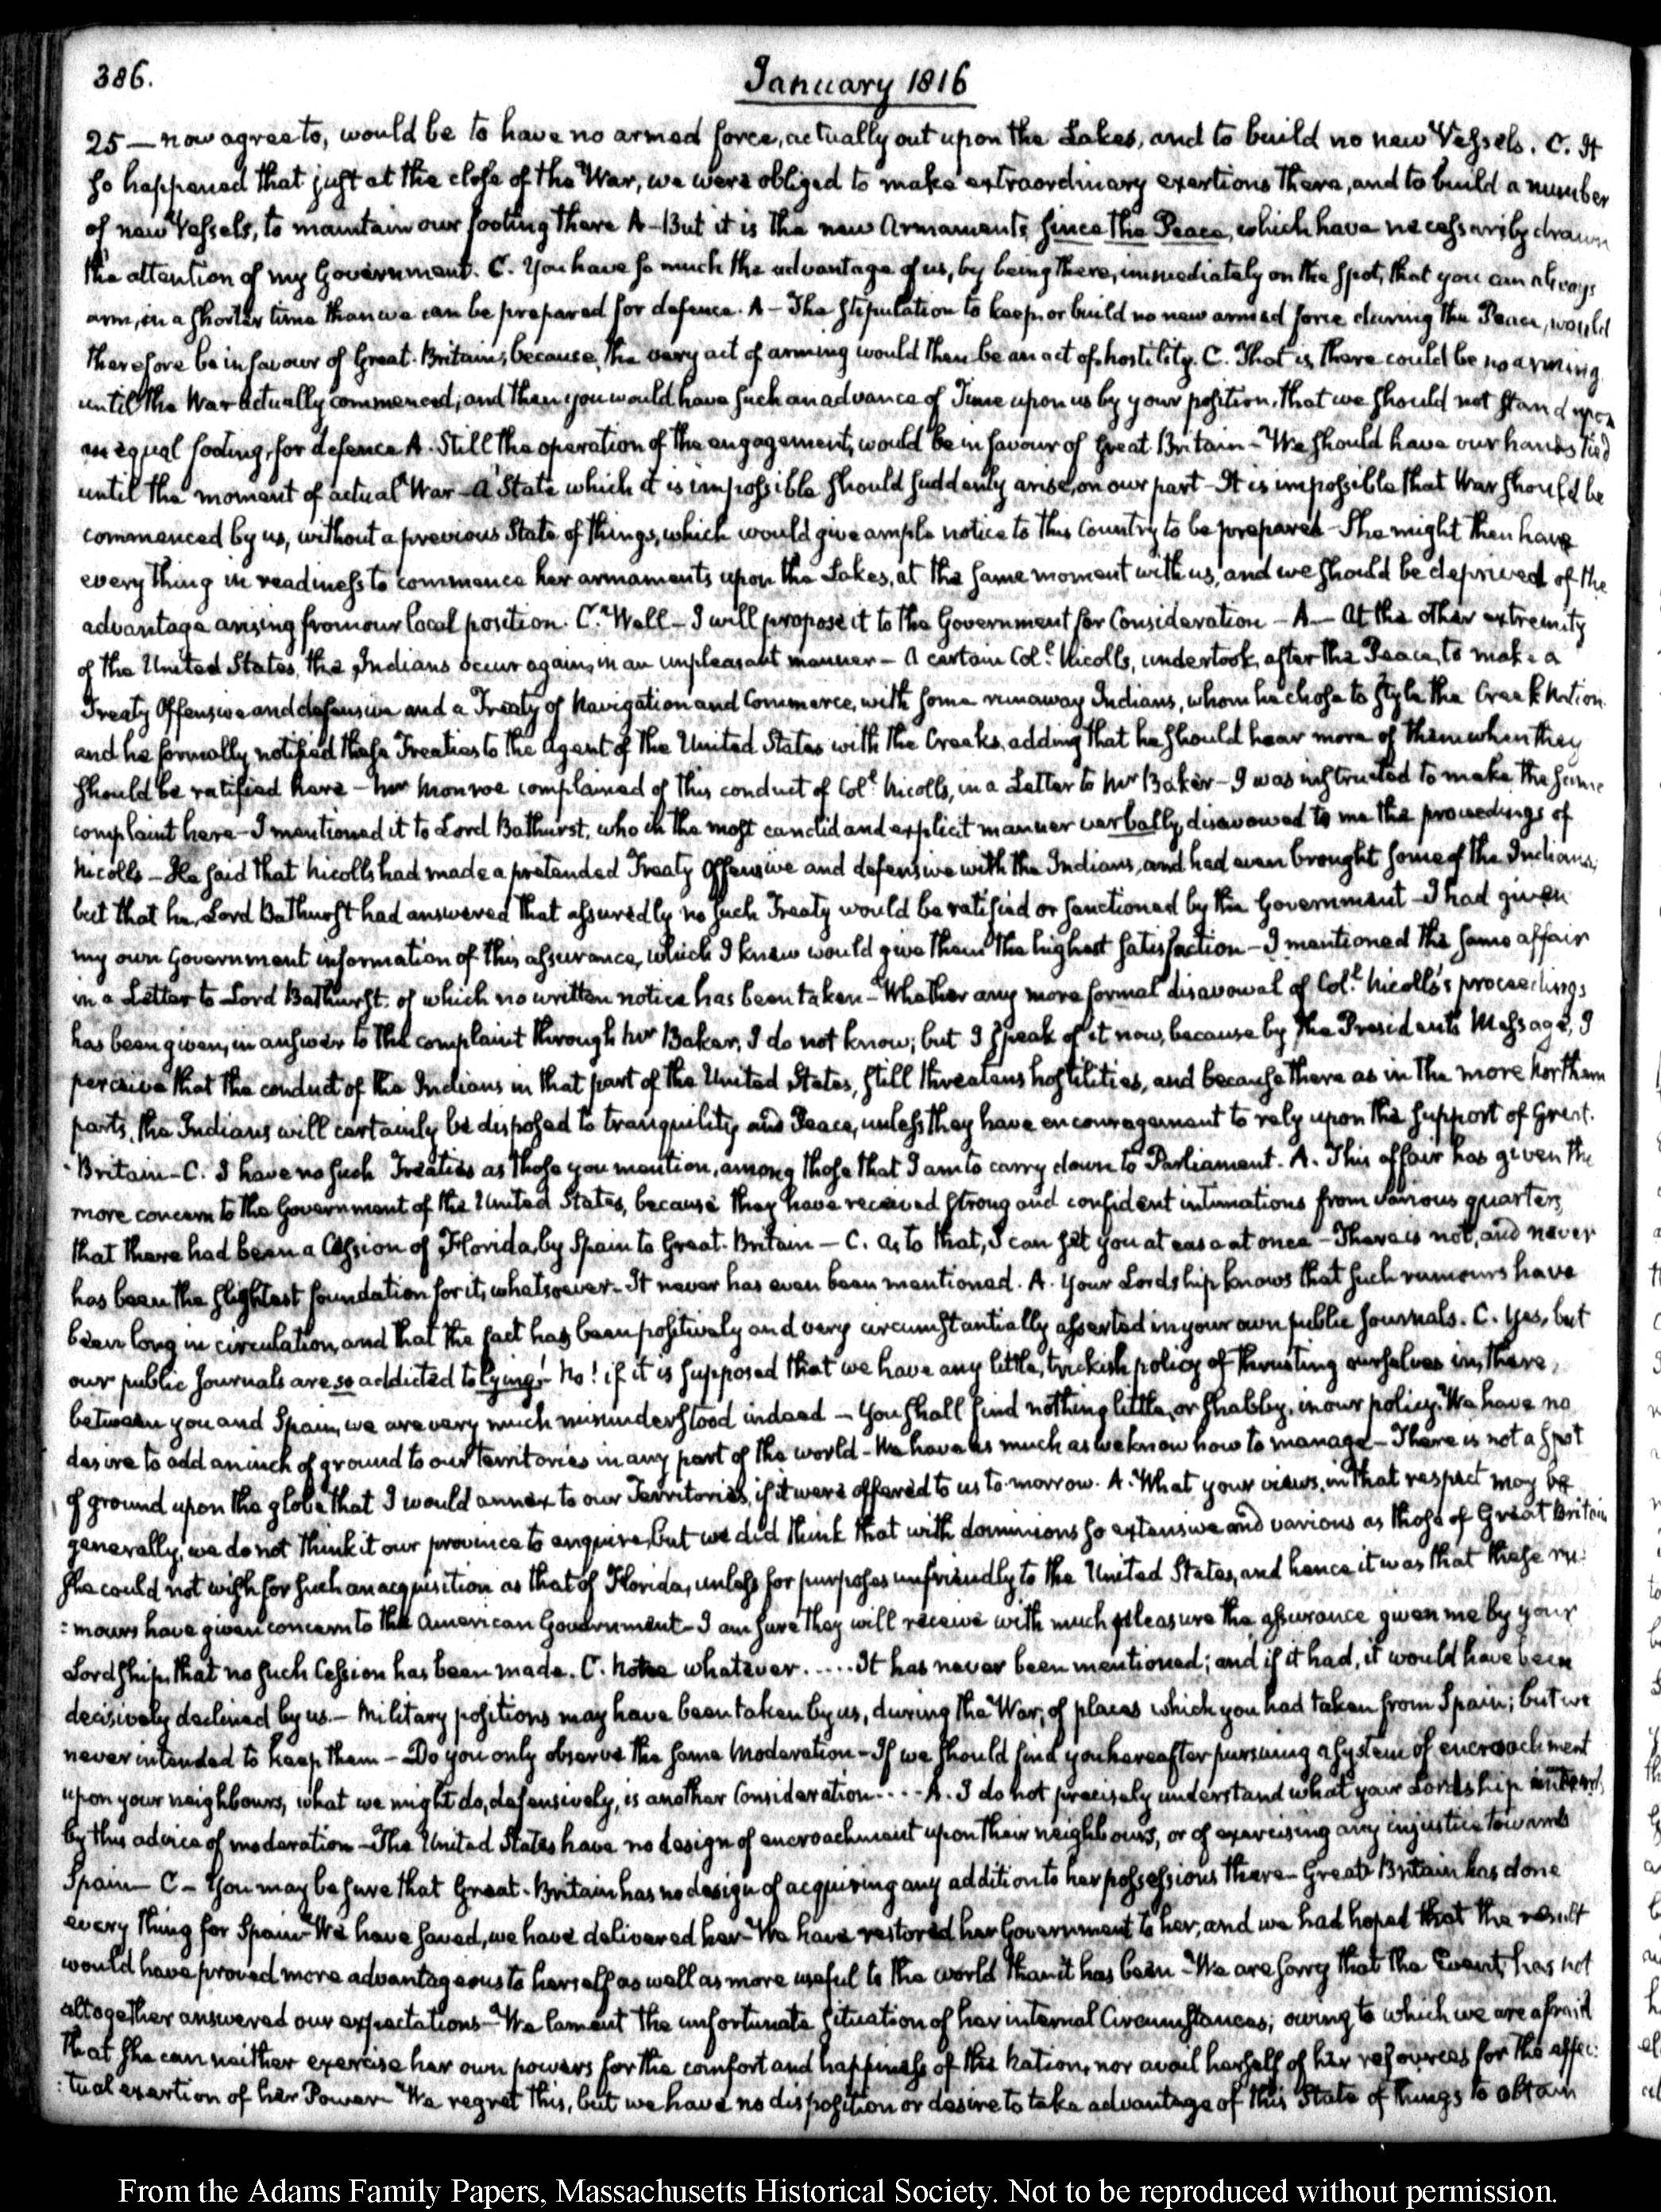 386.
January 1816
25 — now agree to, would be to have no armed force, actually out upon the Lakes, and to build no new Vessels. C. It
so happened that just at the close of the War, we were obliged to make extraordinary exertions there, and to build a number
of new Vessels, to maintain our footing there A — But it is the new Armaments, since the Peace, which have necessarily drawn
the attention of my Government. C. You have so much the advantage of us, by being there, immediately on the spot, that you can always
arm, in a shorter time than we can be prepared for defence. A — The stipulation to keep, or build no new armed force during the Peace, would
therefore be in favour of Great-Britain; because, the very act of arming would then be an act of hostility. C. That is, there could be no arming
until the War actually commenced; and then you would have such an advance of Time upon us by your position, that we should not stand upon
an equal footing, for defence A. Still the operation of the engagement, would be in favour of Great Britain — We should have our hands tied
until the moment of actual War — A State which it is impossible should suddenly arise, on our part — It is impossible that War should be
commenced by us, without a previous State of things, which would give ample notice to this Country to be prepared — She might then have
every thing in readiness to commence her armaments upon the Lakes, at the same moment with us, and we should be deprived of the
advantage arising from our local position. C. Well — I will propose it to the Government for Consideration — A — At the other extremity
of the United States, the Indians occur again, in an unpleasant manner — A certain Coll. Nicolls, undertook, after the Peace, to make a
Treaty Offensive and defensive and a Treaty of Navigation and Commerce, with some runaway Indians, whom he chose to style the Creek Nation
and he formally notified these Treaties to the Agent of the United States with the Creeks, adding that he should hear more of them when they
should be ratified here — Mr Monroe complained of this conduct of Coll. Nicolls, in a Letter to Mr Baker — I was instructed to make the same
complaint here — I mentioned it to Lord Bathurst, who in the most candid and explicit manner verbally, disavowed to me the proceedings of
Nicolls — He said that Nicolls had made a pretended Treaty Offensive and defensive with the Indians, and had even brought some of the Indians,
but that he, Lord Bathurst had answered that assuredly no such Treaty would be ratified or sanctioned by the Government — I had given
my own Government information of this assurance, which I knew would give them the highest satisfaction — I mentioned the same affair
in a Letter to Lord Bathurst: of which no written notice has been taken — Whether any more formal disavowal of Coll. Nicolls's proceedings
has been given, in answer to the complaint through Mr Baker, I do not know; but I speak of it now, because by the Presidents Message, I
perceive that the conduct of the Indians in that part of the United States, still threatens hostilities, and because there as in the more Northern
parts, the Indians will certainly be disposed to tranquility and Peace, unless they have encouragement to rely upon the support of Great-
-Britain — C. I have no such Treaties as those you mention, among those that I am to carry down to Parliament. A. This affair has given the
more concern to the Government of the United States, because they have received strong and confident intimations from various quarters,
that there had been a Cession of Florida, by Spain to Great-Britain — C. As to that, I can set you at ease at once — There is not, and never
has been the slightest foundation for it, whatsoever — It never has even been mentioned. A. Your Lordship knows that such rumours have
been long in circulation, and that the fact has been positively and very circumstantially asserted in your own public Journals. C. Yes, but
our public Journals are so addicted to lying! — No! if it is supposed that we have any little, trickish policy of thrusting ourselves in, there,
between you and Spain, we are very much misunderstood indeed — You shall find nothing little, or shabby, in our policy. We have no
desire to add an inch of ground to our territories in any part of the world — We have as much as we know how to manage — There is not a spot
of ground upon the globe that I would annex to our Territories, if it were offered to us to-morrow. A. What your views, in that respect may be
generally, we do not think it our province to enquire, but we did think that with dominions so extensive and various as those of Great Britain
she could not wish for such an acquisition as that of Florida, unless for purposes unfriendly to the United States, and hence it was that these ru:
:mours have given concern to the American Government — I am sure they will receive with much pleasure the assurance given me by your
Lordship, that no such Cession has been made. C. None whatever..... It has never been mentioned; and if it had, it would have been
decisively declined by us. — Military positions may have been taken by us, during the War, of places which you had taken from Spain; but we
never intended to keep them — Do you only observe the same Moderation — If we should find you hereafter pursuing a system of encroachment
upon your neighbours, what we might do, defensively, is another Consideration.... A. I do not precisely understand what your Lordship intends,
by this advice of moderation — The United States have no design of encroachment upon their neighbours, or of exercising any injustice towards
Spain — C — You may be sure that Great-Britain has no design of acquiring any addition to her possessions there — Great Britain has done
every thing for Spain — We have saved, we have delivered her — We have restored her Government to her; and we had hoped that the result
would have proved more advantageous to herself as well as more useful to the world than it has been — We are sorry that the Event, has not
altogether answered our expectations — We lament the unfortunate situation of her internal Circumstances; owing to which we are afraid
that she can neither exercise her own powers for the comfort and happiness of the Nation, nor avail herself of her resources for the effec:
:tual exertion of her Power — We regret this, but we have no disposition or desire to take advantage of this State of things to obtain
From the Adams Family Papers, Massachusetts Historical Society. Not to be reproduced without permission.